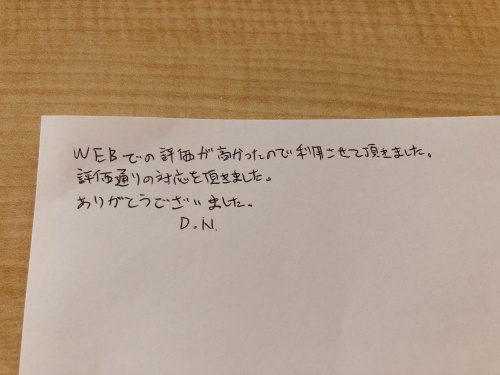 WEBでの評価が高かったので利用させて頂きました。
評価通りの対応を頂きました。
ありがとうございました。
D.N.